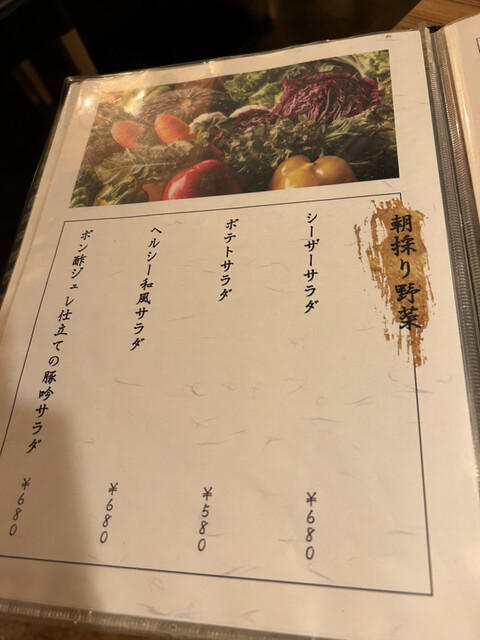 朝採り野菜
シーザーサラダ ¥680
ポテトサラダ ¥580
ヘルシー和風サラダ ¥680
ポン酢ジュレ仕立ての豚吟サラダ ¥680